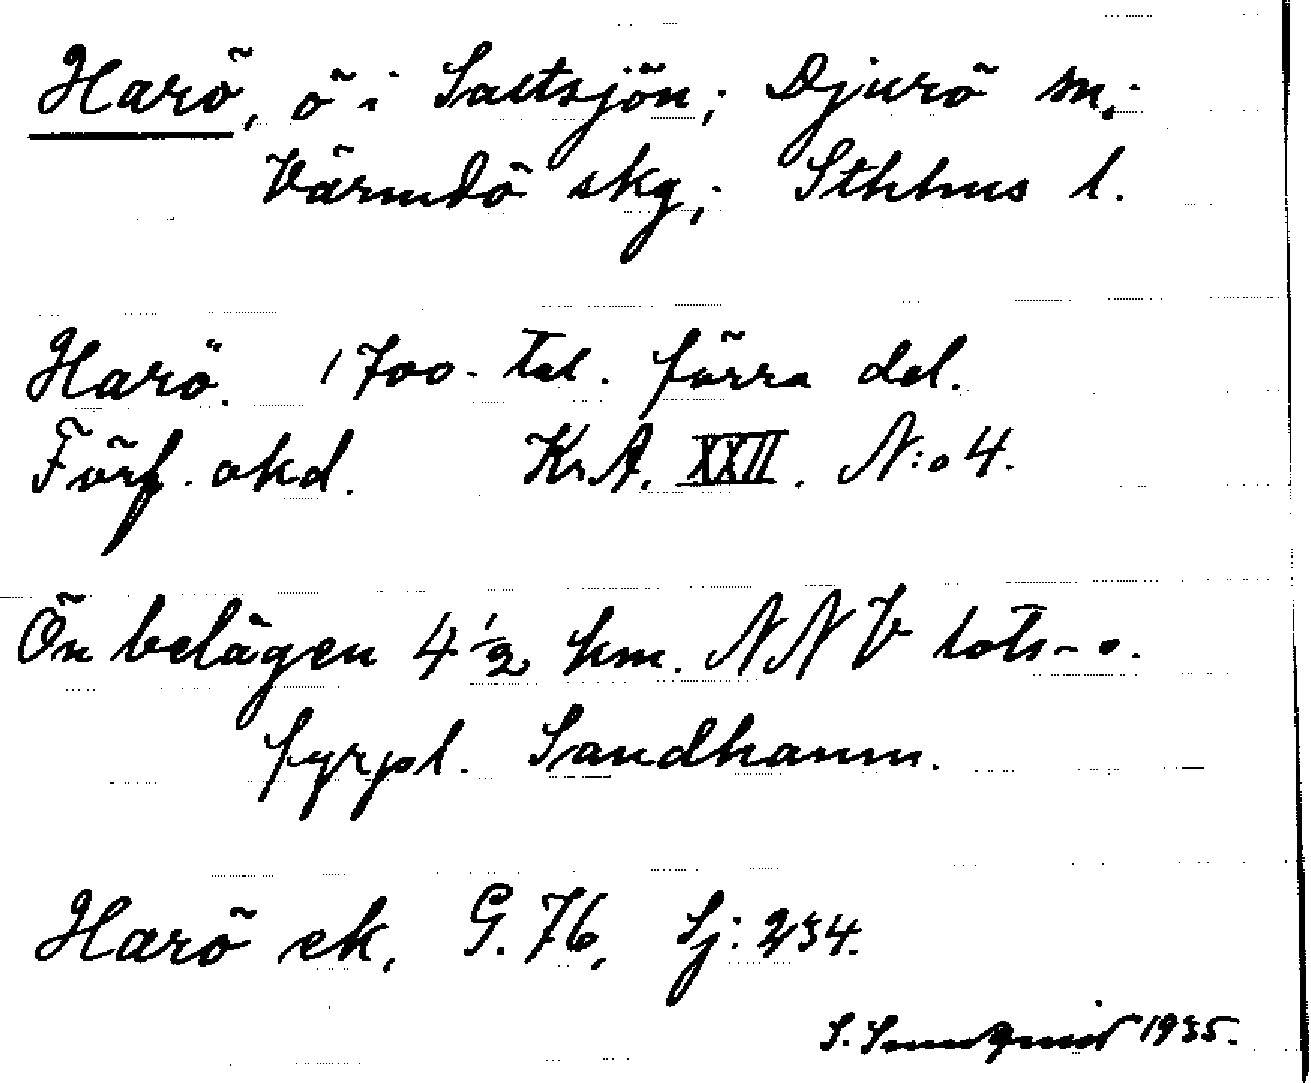 Harö, ö i Saltsjön; Djurö sn;
Värmdö skg; Sthlms l.
Harö. 1700-tal. förra del.
Förf. okd. Kr.A. XXII. N:o 4.
Ön belägen 4 1/2 km. NNV lots- o.
fyrpl. Sandhamn.
Harö ek. G. 76, Sj: 234.
S. 1935.